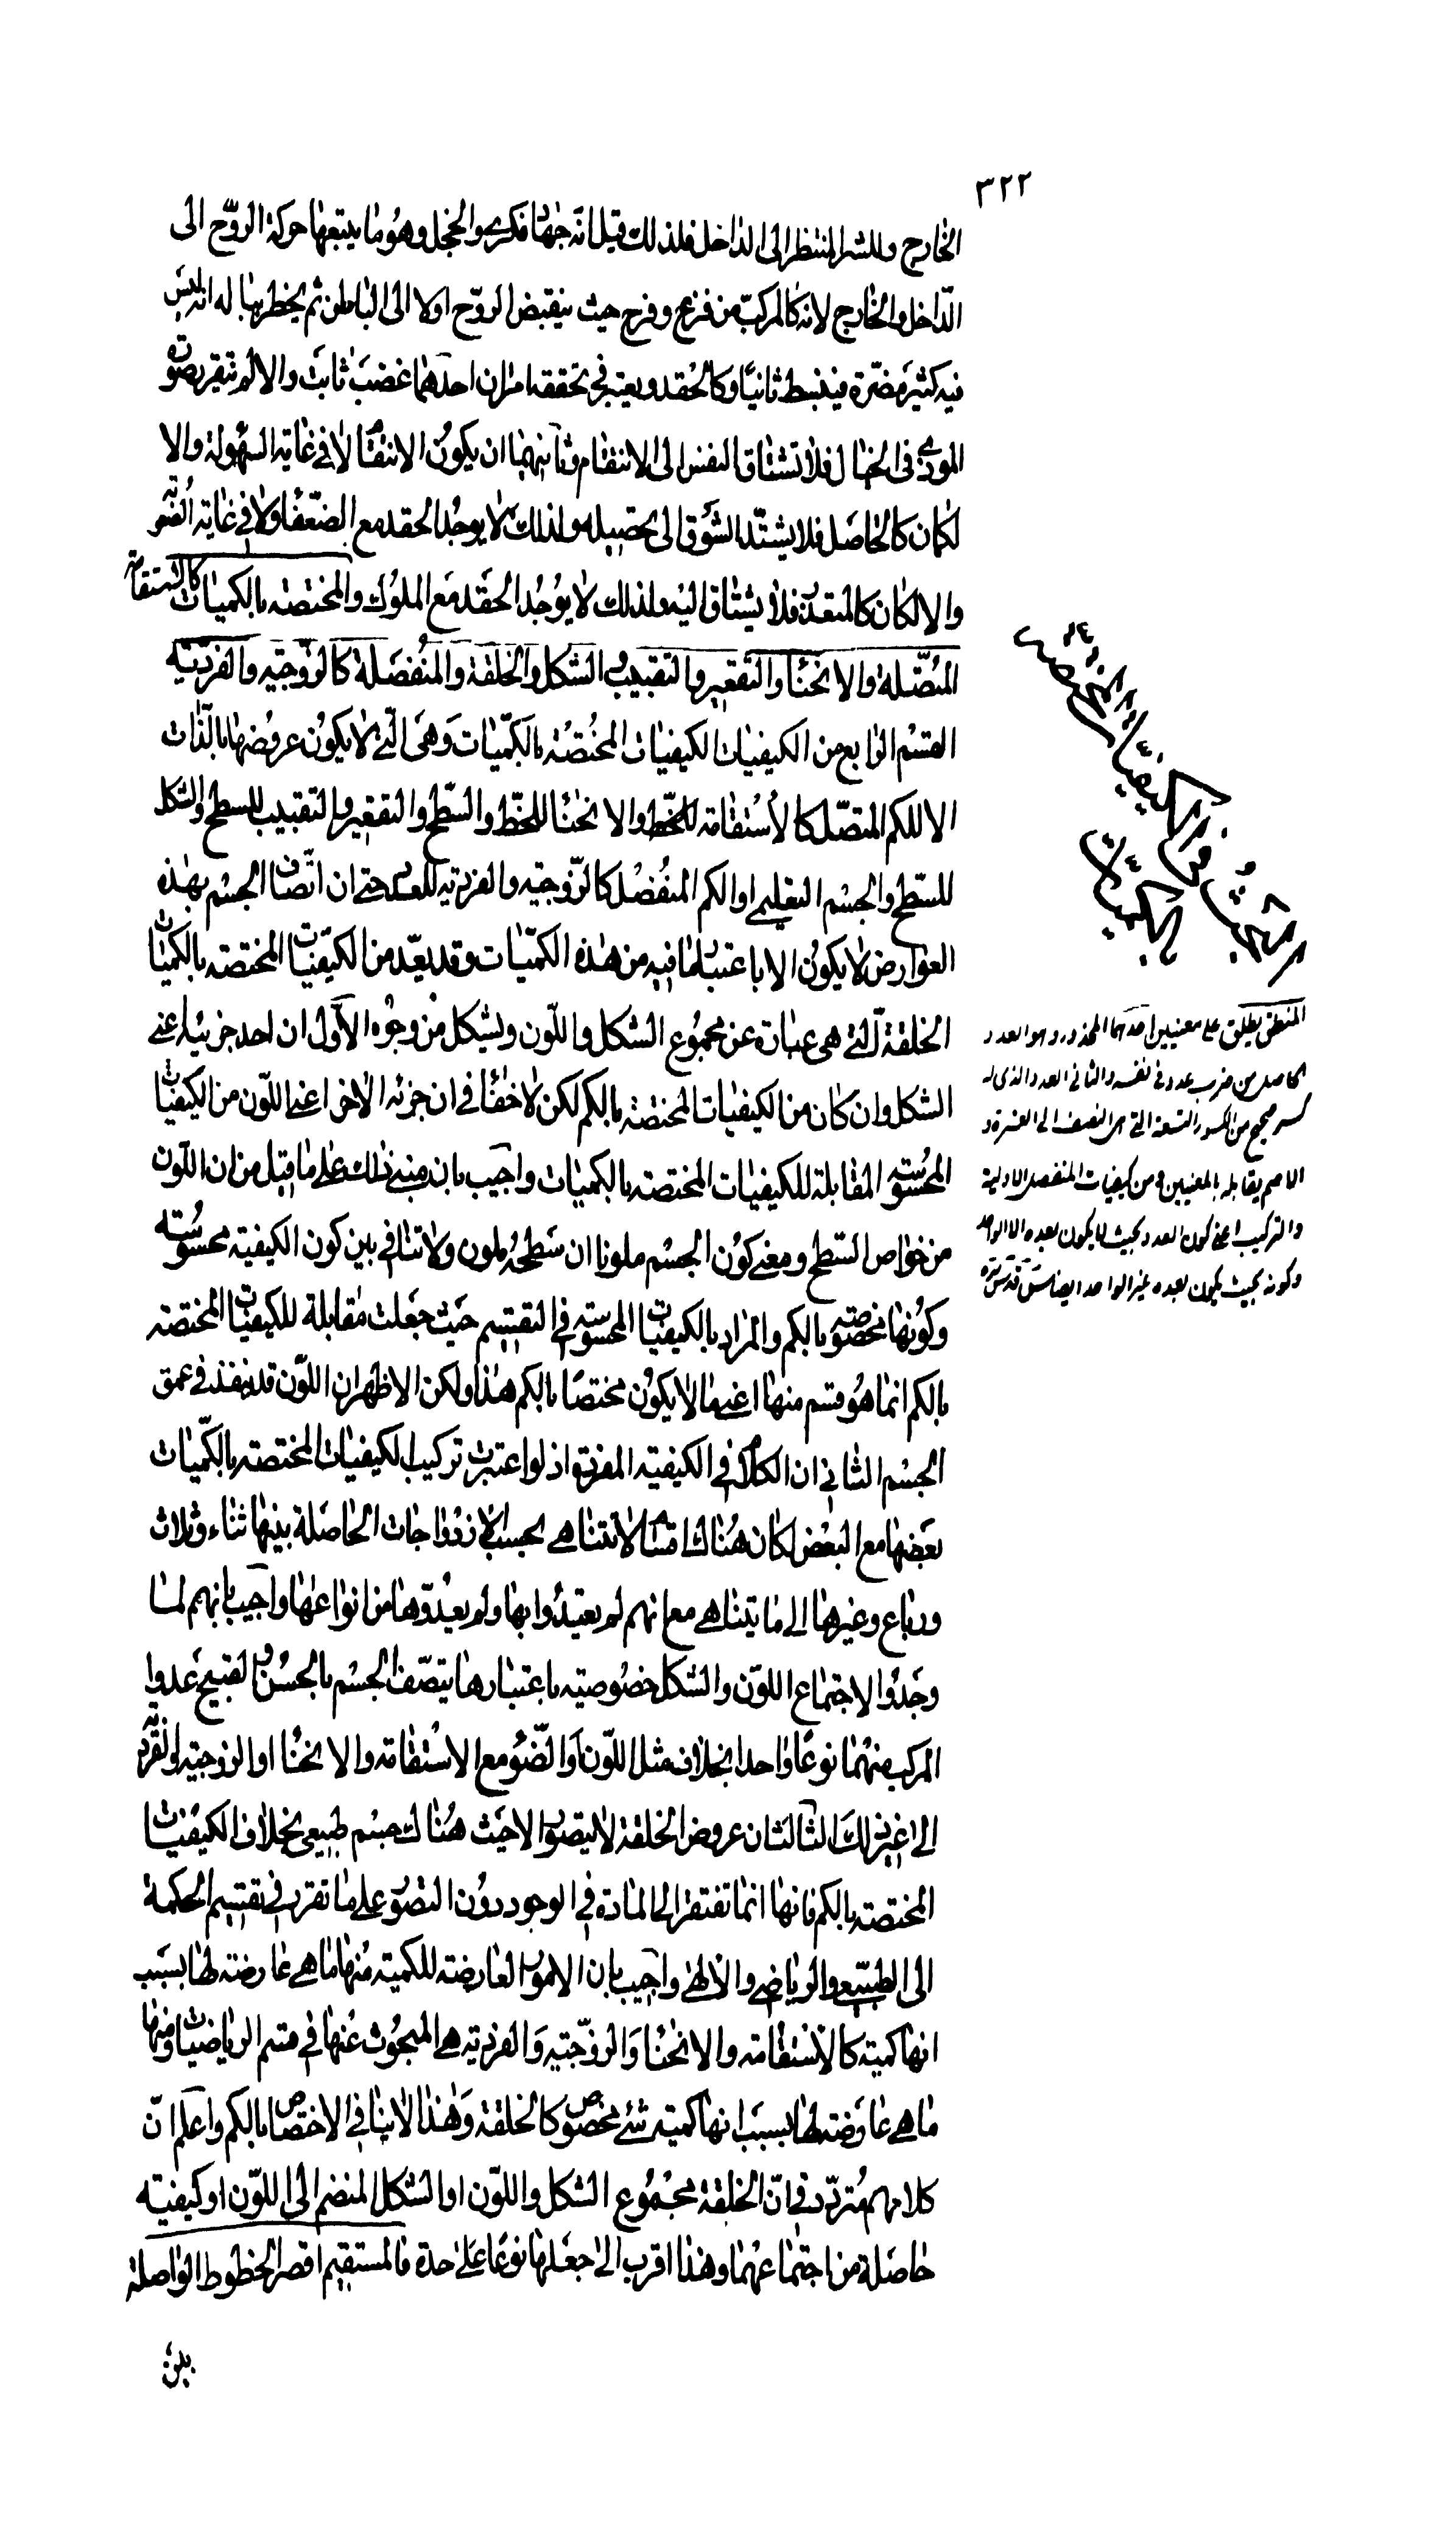 ٣٢٢
الخارج وللشر المنتظر الى الداخل فلذلك قيل انه جهاد فكري والخجل وهو ما يتبعها حركة الروح الى
الداخل والخارج لانه كالمركب من فزع وفرح حيث ينقبض الروح اولا الى الباطن ثم يخطر بباله انه ليس
فيه كثير مضرة فينبسط ثانيا وكالحقد ويعتبر في تحققه امران احدهما غضب ثابت والا لم تتقرر صورة
الموذي في الخيال فلا تشتاق النفس الى الانتقام وثانيهما ان يكون الانتقام لا في غاية السهولة والا
لكان كالحاصل فلا يشتد الشوق الى تحصيله ولذلك لا يوجد الحقد مع الضعفاء ولا في غاية الصعوبة
والا لكان كالمتعذر فلا يشتاق اليه ولذلك لا يوجد الحقد مع الملوك والمختصة بالكميات كالاستقامة
المتصلة والانحناء والتقعير والتقبيب والشكل والخلقة والمنفصلة كالزوجية والفردية
القسم الرابع من الكيفيات الكيفيات المختصة بالكميات وهى التي لا يكون عروضها بالذات
الا للكم المتصل كالاستقامة للخط والانحناء للخط والسطح والتقعير والتقبيب للسطح والشكل
للسطح والجسم التعليمي او الكم المنفصل كالزوجية والفردية للعدد حتى ان اتصاف الجسم بهذه
العوارض لا يكون الا باعتبار ما فيه من هذه الكميات وقد يعد من الكيفيات المختصة بالكميات
الخلقة التي هى عبارة عن مجموع الشكل واللون ويشكل من وجوه الاول ان احد جزئيه اعني
الشكل وان كان من الكيفيات المختصة بالكم لكن لا خفاء في ان جزئه الاخر اعني اللون من الكيفيات
المحسوسة المقابلة للكيفيات المختصة بالكميات واجيب بان مبني ذلك على ما قيل من ان اللون
من خواص السطح ومعنى كون الجسم ملونا ان سطحه ملون ولا تنافي بين كون الكيفية محسوسة
وكونها مخصوصة بالكم والمراد بالكيفيات المحسوسة في التقسيم حيث جعلت مقابلة للكيفيات المختصة
بالكم انما هو قسم منها اعني ما لا يكون مختصا بالكم هذا ولكن الاظهر ان اللون قد ينفذ في عمق
الجسم الثاني ان الكلام في الكيفية المفردة اذ لو اعتبرت تركيب الكيفيات المختصة بالكميات
بعضها مع البعض لكان هناك اقسام لا تتناهي بحسب الازدواجات الحاصلة بينها ثناء وثلاث
ورباع وغيرها الى ما يتناهي مع انهم لم يعتبدوا بها ولم يعدوها من انواعها واجيب بانهم لما
وجدوا لاجتماع اللون والشكل خصوصية باعتبارها يتصف الجسم بالحسن والقبح عدوا
المركب منهما نوعا واحدا بخلاف مثل اللون او الضوء مع الاستقامة والانحناء او الزوجية او الفردية
الى غير ذلك الثالث ان عروض الخلقة لا يتصور الا حيث هناك جسم طبيعى بخلاف الكيفيات
المختصة بالكم فانها انما تفتقر الى المادة في الوجود دون التصور على ما تقرر في تقسيم الحكمة
الى الطبيعي والرياضي والالهي واجيب بان الامور العارضة للكمية منها ما هي عارضة لها بسبب
انها كمية كالاستقامة والانحناء والزوجية والفردية هي المبحوث عنها في قسم الرياضيات ومنها
ما هي عارضة لها بسبب انها كمية شئ مخصوص كالخلقة وهذا لا ينافي الاختصاص بالكم واعلم ان
كلامهم متردد في ان الخلقة مجموع الشكل واللون او الشكل المنضم الى اللون او كيفية
حاصلة من اجتماعهما وهذا اقرب الى جعلها نوعا على حدة فالمستقيم اقصر الخطوط الواصلة
بين
المبحث الرابع
من الكيفيات المختصة
بالكميات
المنطق يطلق على معنيين احدهما المجذور وهو العدد
الحاصل من ضرب عدد في نفسه والثاني العدد الذي له
كسر صحيح من الكسور التسعة التي هى النصف الى العشرة و
الاصم يقابله بالمعنيين ومن كيفيات المنفصل الاولية
والتركيب اعني كون العدد بحيث لا يكون يعده الا الواحد
وكونه بحيث يكون يعده غير الواحد ايضا